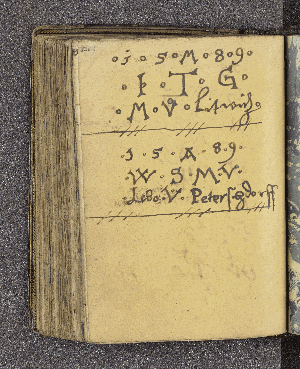 · 1 · 5 · M · 8 · 9 ·
· I · T · G ·
· M · V · Litwitz ·
· 1 · 5 · A · 8 · 9 ·
· W · S · M · V ·
V · Petersdorff